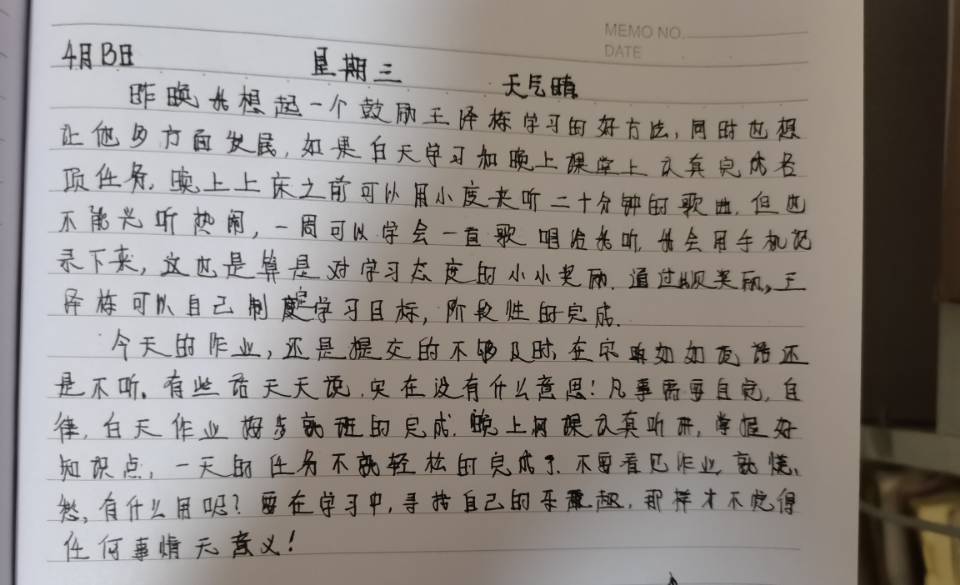 MEMO NO.
DATE
4月13日 星期三 天气晴
昨晚我想起一个鼓励王泽栋学习的好方法,同时也想
让他多方面发展,如果白天学习和晚上课堂上认真完成各
项任务,晚上上床之前可以用小度来听二十分钟的歌曲,但也
不能光听热闹,一周可以学会一首歌唱给我听,我会用手机记
录下来,这也是算是对学习态度的小小奖励.通过奖励,王
泽栋可以自己制定学习目标,阶段性的完成.
今天的作业,还是提交的不够及时,在家妹如如说话还
是不听。有些话天天说,实在没有什么意思!凡事需要自觉,自
律,白天作业按步就班的完成.晚上网课认真听讲,掌握好
知识点,一天的任务不就轻松的完成了.不要看见作业就烦、
愁,有什么用呢?要在学习中,寻找自己的乐趣,那样才不觉得
任何事情无意义!